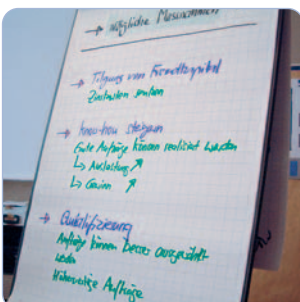 → mögliche Massnahmen
→ Tilgung von Fremdkapital
Zinskosten senken
→ Know-how steigern
Gute Aufträge können realisiert werden
↳ Auslastung ↗
↳ Gewinn ↗
→ Qualifizierung
Aufträge können besser ausgewählt
werden
Höherwertige Aufträge